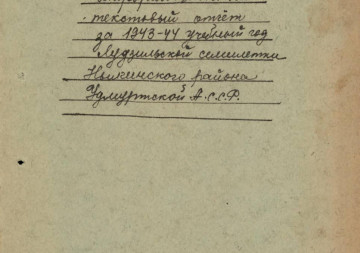 текстовый отчёт
за 1943-44 учебный год
Лудзильской семилетки
Нылгинского района
Удмуртской А.С.С.Р.